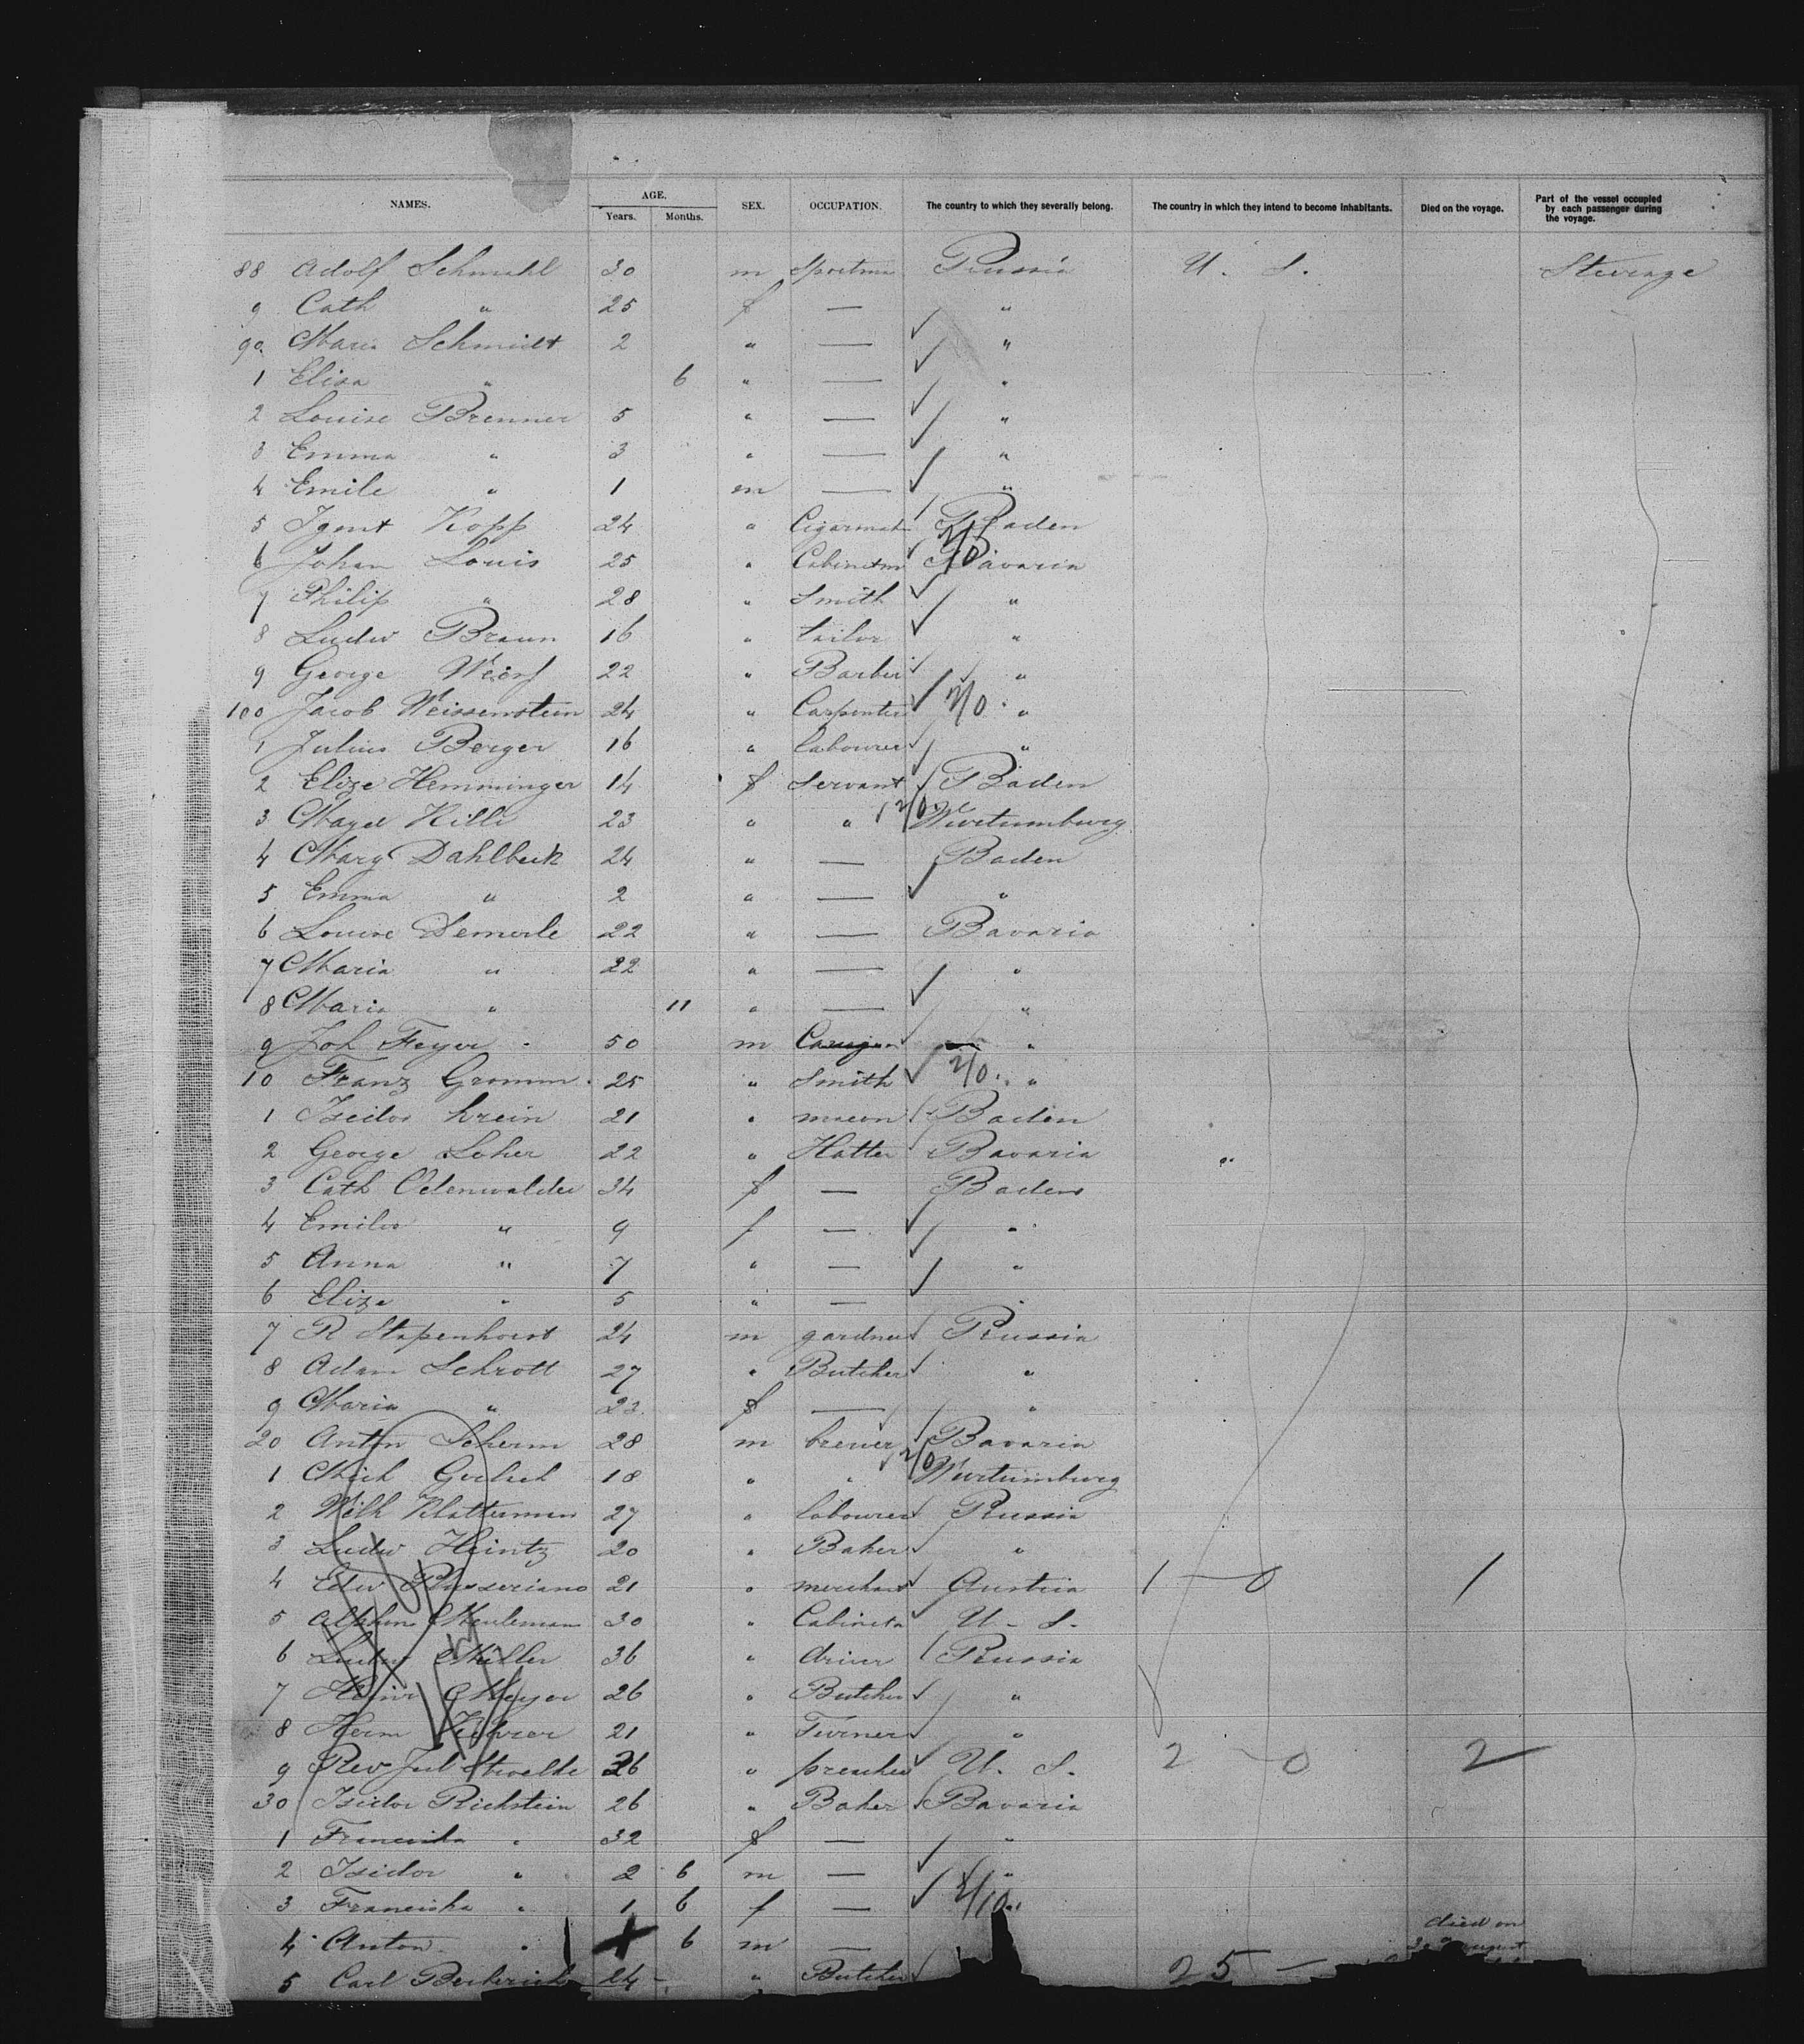 NAMES. AGE. Years. Months. SEX. OCCUPATION. The country to which they severally belong. The country in which they intend to become inhabitants. Died on the voyage. Part of the vessel occupied by each passenger during the voyage.
88 Adolf Schmahl 30 m Prussia U. S. Steerage
9 Cath " 25 f — "
90 Maria Schmidt 2 " — "
1 Elisa " 6 " — "
2 Louise Brenner 5 " — "
3 Emma " 3 " — "
4 Emile " 1 m — "
5 Kopp 24 " Cigarmak Baden
6 Johan Louis 25 " Cabinetm Bavaria
7 Philip " 28 " Smith "
8 Ludw Braun 16 " tailor "
9 George 22 " Barber "
100 Jacob Weissenstein 24 " Carpenter 2/0 "
1 Julius Berger 16 " labourer "
2 Elize Hemminger 14 f servant Baden
3 23 " " Wurtumburg
4 Mary Dahlbeck 24 " — Baden
5 Emma " 2 " — "
6 Louise Demerle 22 " — Bavaria
7 Maria " 22 " — "
8 Maria " 11 " — "
9 Joh Feyer 50 m "
10 Franz Gromm 25 " Smith 2/0 "
1 Isidor Krein 21 " mason Baden
2 George Loher 22 " Hatter Bavaria "
3 Cath Odenwalder 34 f — Baden
4 " 9 f — "
5 Anna " 7 " — "
6 Elize " 5 " — "
7 R Stapenhorst 24 m gardner Prussia
8 Adam Schrott 27 " Butcher "
9 Maria " 23 f — "
20 Anton Scherm 28 m brewer Bavaria
1 Mich 18 " " Wurtumburg
2 Wilh Klatterman 27 " labourer Prussia
3 Ludw Heintz 20 " Baker "
4 Edw 21 " merchant Austria 1 — 0 1
5 Alphons Meuleman 30 " U. S.
6 Ludw Miller 36 " driver Prussia
7 Heinr Meyer 26 " Butcher "
8 Herm 21 " Turner "
9 Rev Jul 36 " preacher U. S. 2 — 0 2
30 Isidor Richstein 26 " Baker Bavaria
1 Franciska " 32 f — "
2 Isidor " 2 6 m — "
3 Franciska " 1 6 f — 2/10 "
4 Anton " 6 m — died on
5 Carl 24 " Butcher 25 —